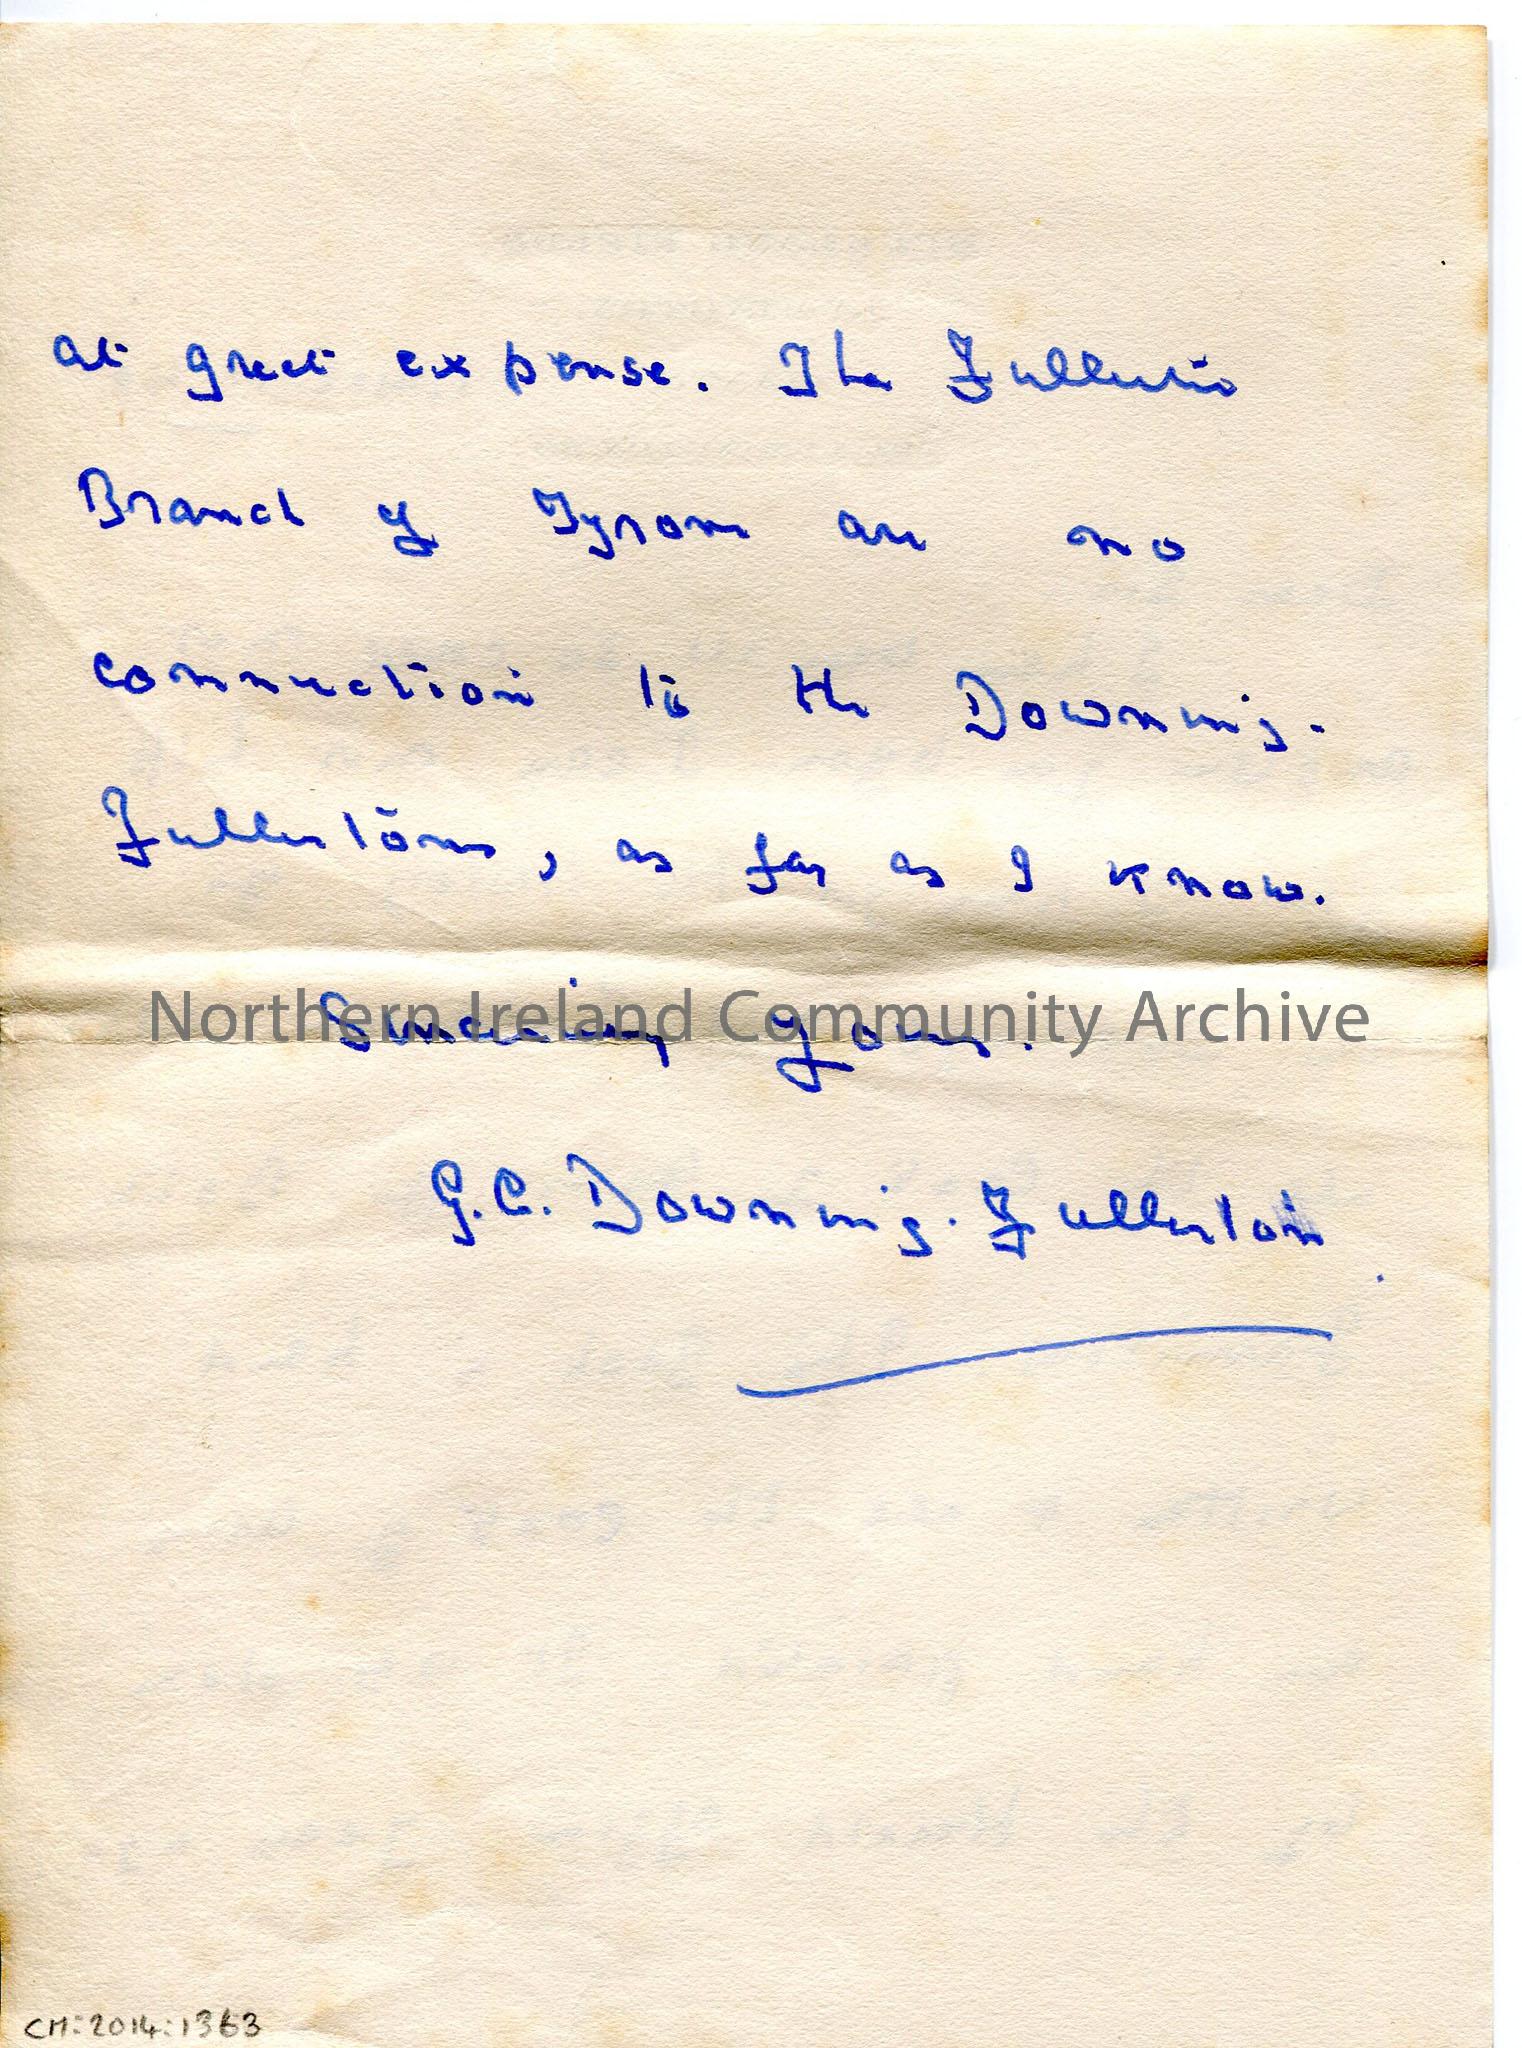 at great expense. The Fullerton
Branch of Tyrone are no
connection to the Downing-
Fullertons, as far as I know.
Sincerely Yours.
Northern Ireland Community Archive
G.C. Downing-Fullerton
CM:2014:1363